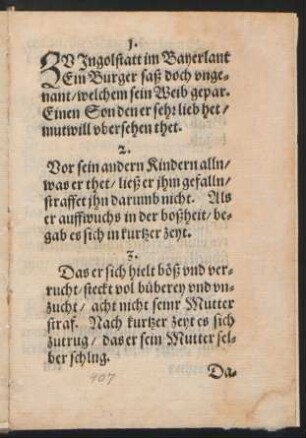 1.
ZV Jngolstatt im Bayerlant
Ein Burger saß doch vnge-
nant/welchem sein Weib gepar.
Einen Son den er sehr lieb het/
mutwill vbersehen thet.
2.
Vor sein andern Kindern alln/
was er thet/ ließ er jhm gefalln/
straffet jhn darumb nicht. Als
er auffwuchs in der boßheit/ be-
gab es sich in kurtzer zeyt.
3.
Das er sich hielt böß vnd ver-
rucht/ steckt vol büberey vnd vn-
zucht/ acht nicht seinr Mutter
straf. Nach kurtzer zeyt es sich
zutrug/ das er sein Mutter sel-
ber schlug.
Da-
907